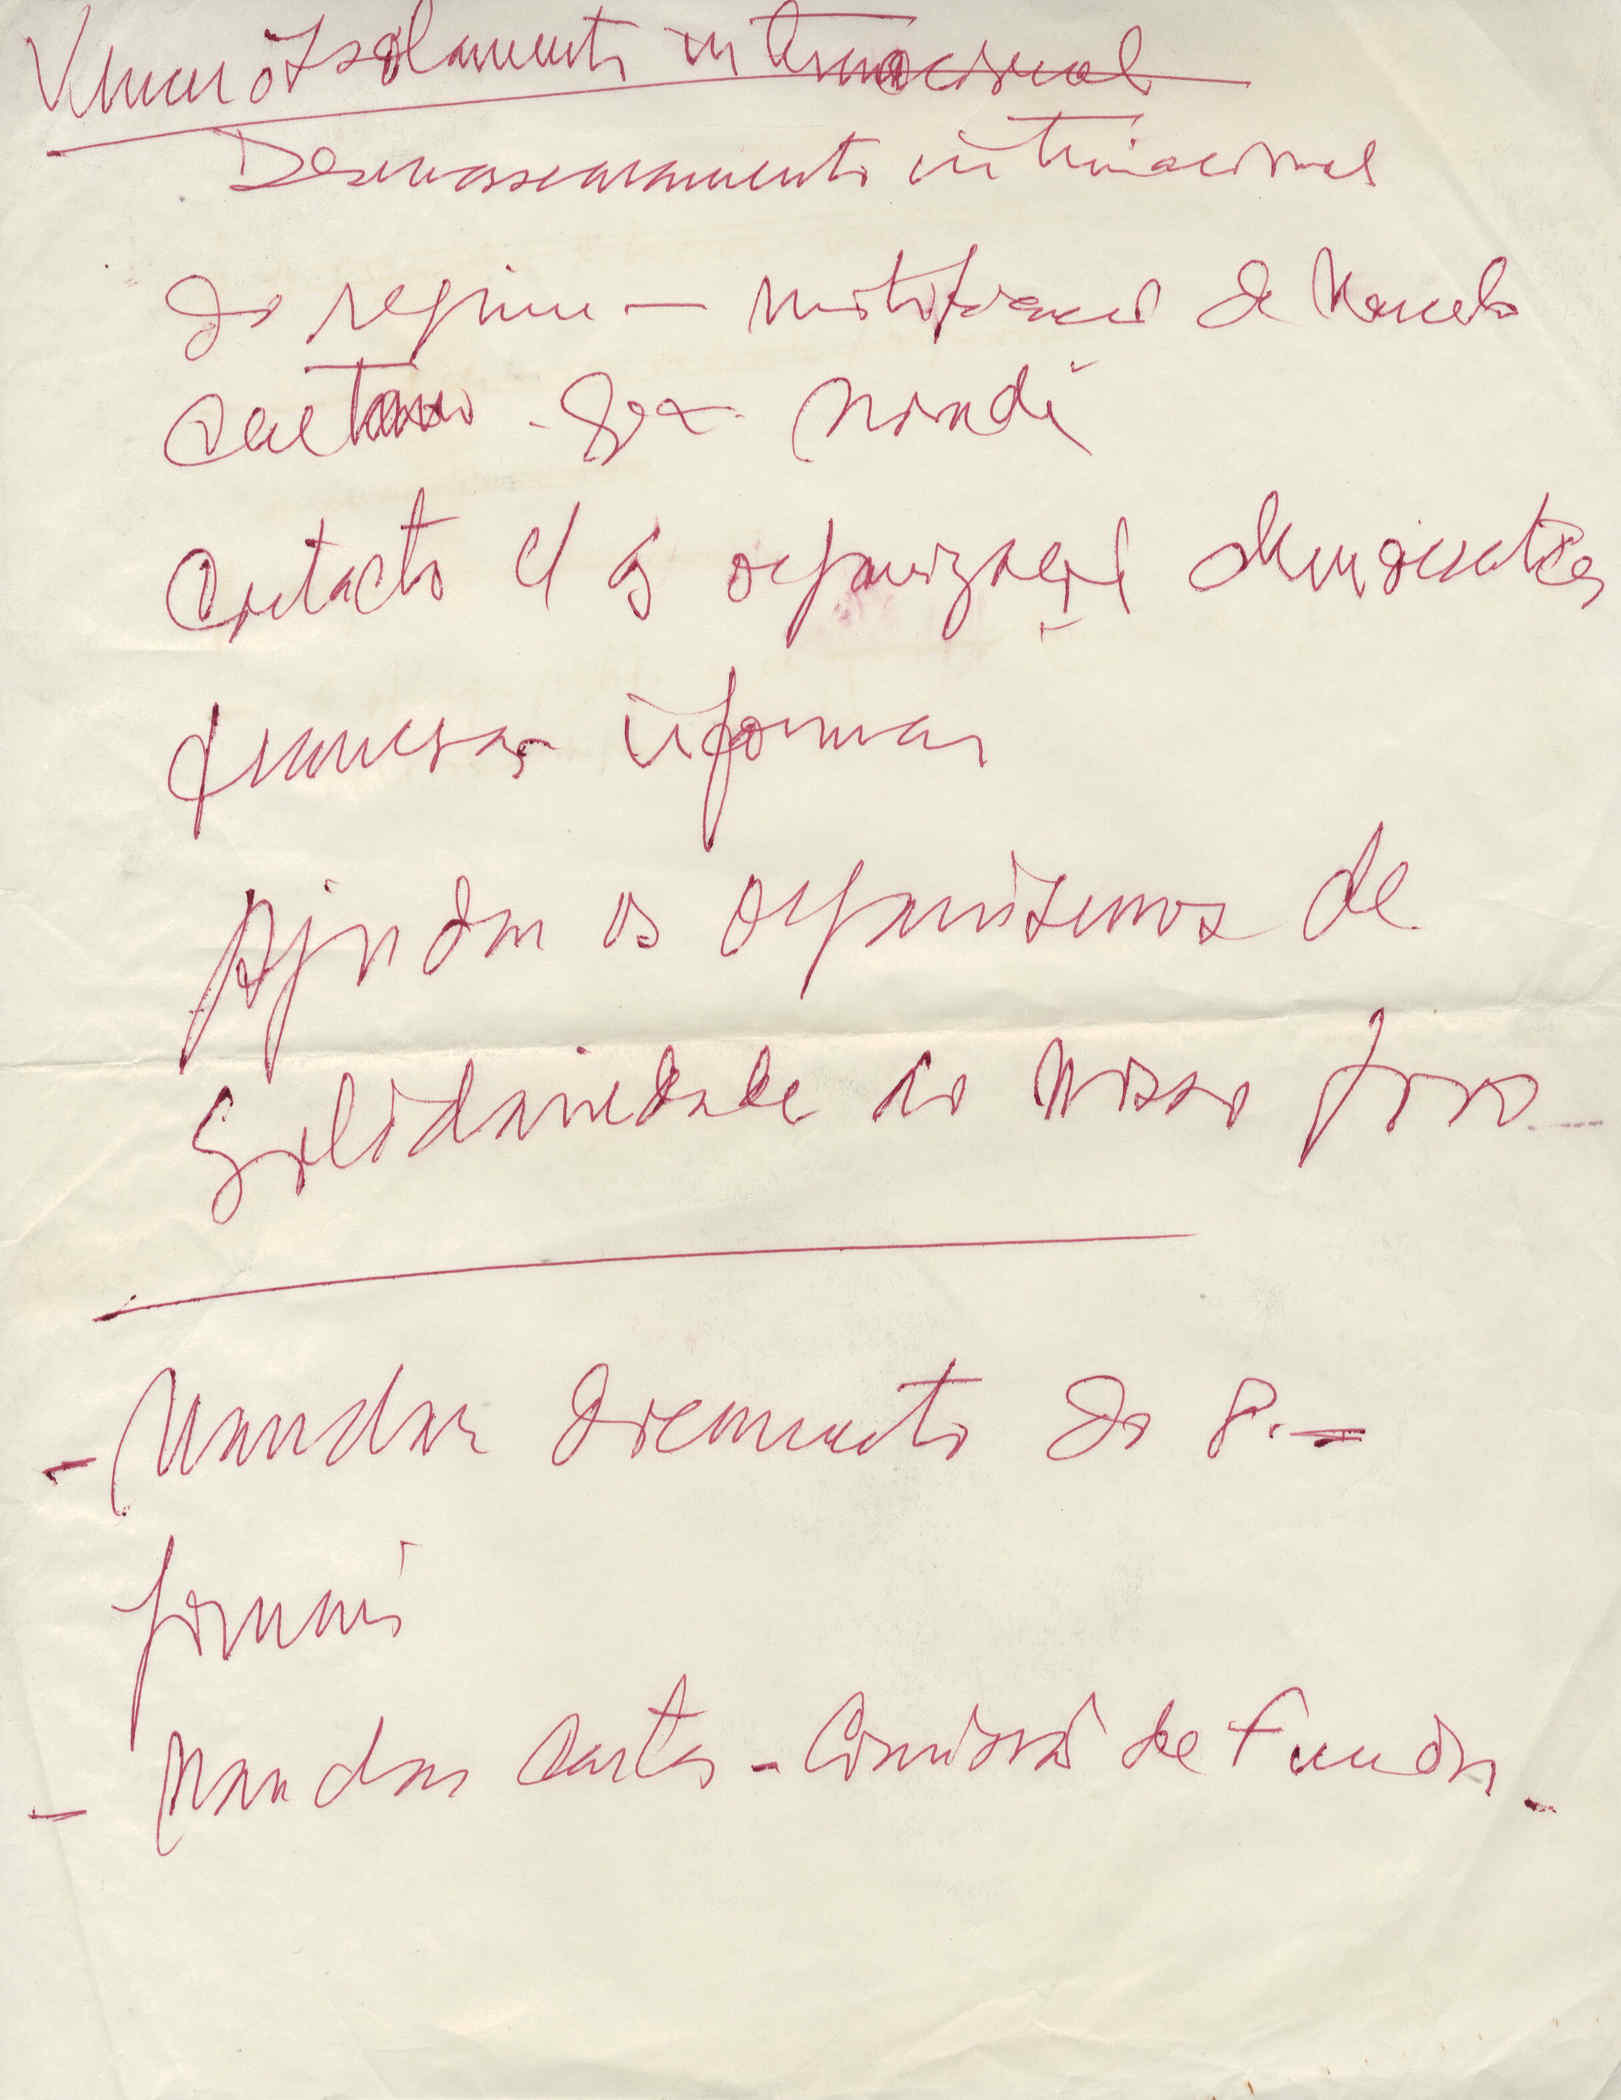 Vencer o Isolamento internacional
Desmascaramento internacional
do regime — mistificação de Marcelo
Caetano
Contacto c/ as organizações democráticas
francesas informar
Ajudar os organismos de
Solidariedade ao nosso povo
- Mandar documento do P. -
- Mandar Cartas - Comissão de Fundos -